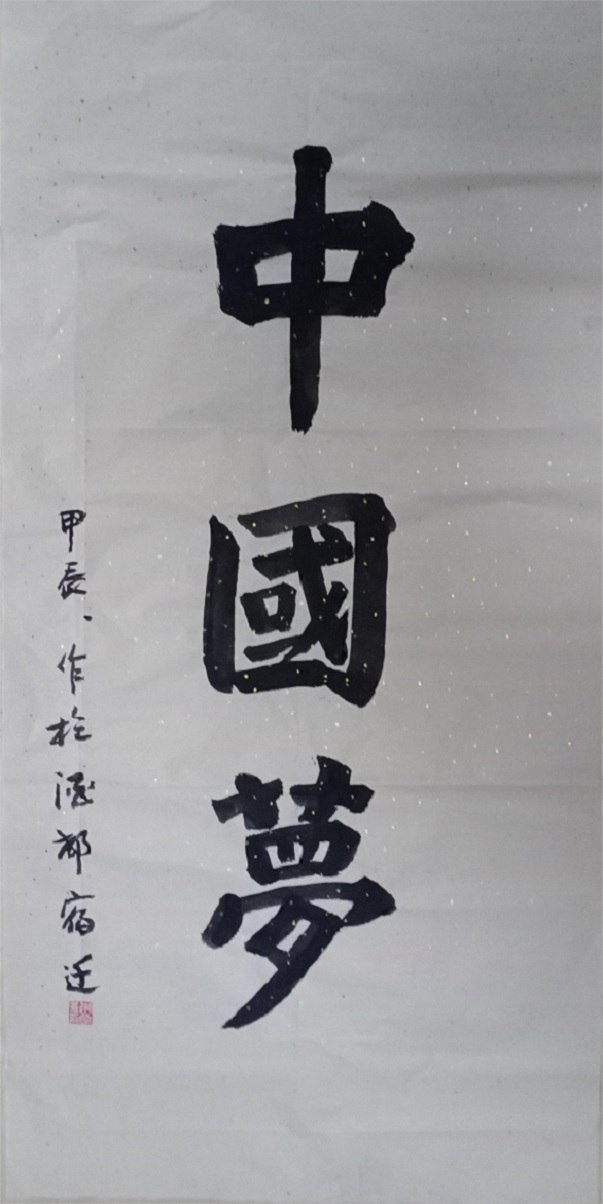 中國夢
甲辰、作於酒都宿迁